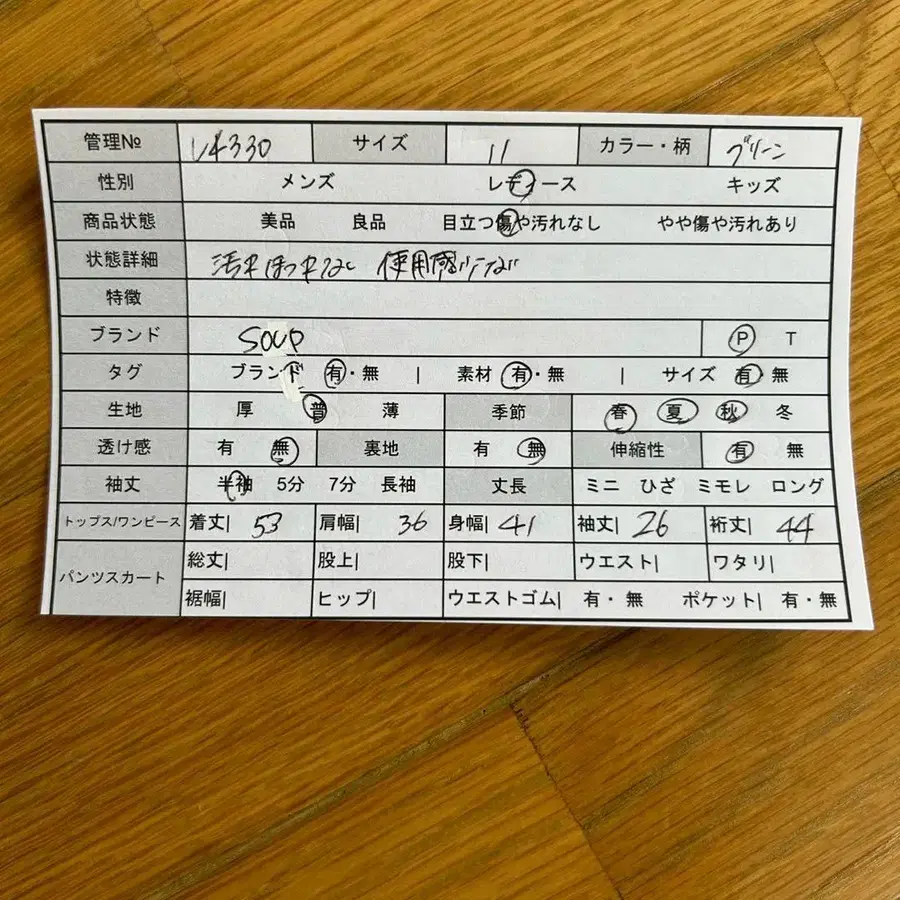 管理№ V4330 サイズ 11 カラー・柄 グリーン
性別 メンズ レディース キッズ
商品状態 美品 良品 目立つ傷や汚れなし やや傷や汚れあり
状態詳細 汚れほつれなし 使用感
特徴
ブランド SOUP P T
タグ ブランド 有・無 | 素材 有・無 | サイズ 有 無
生地 厚 普 薄 季節 春 夏 秋 冬
透け感 有 無 裏地 有 無 伸縮性 有 無
袖丈 半袖 5分 7分 長袖 丈長 ミニ ひざ ミモレ ロング
トップス/ワンピース 着丈| 53 肩幅| 36 身幅| 41 袖丈| 26 裄丈| 44
パンツスカート 総丈| 股上| 股下| ウエスト| ワタリ|
裾幅| ヒップ| ウエストゴム| 有・無 ポケット| 有・無